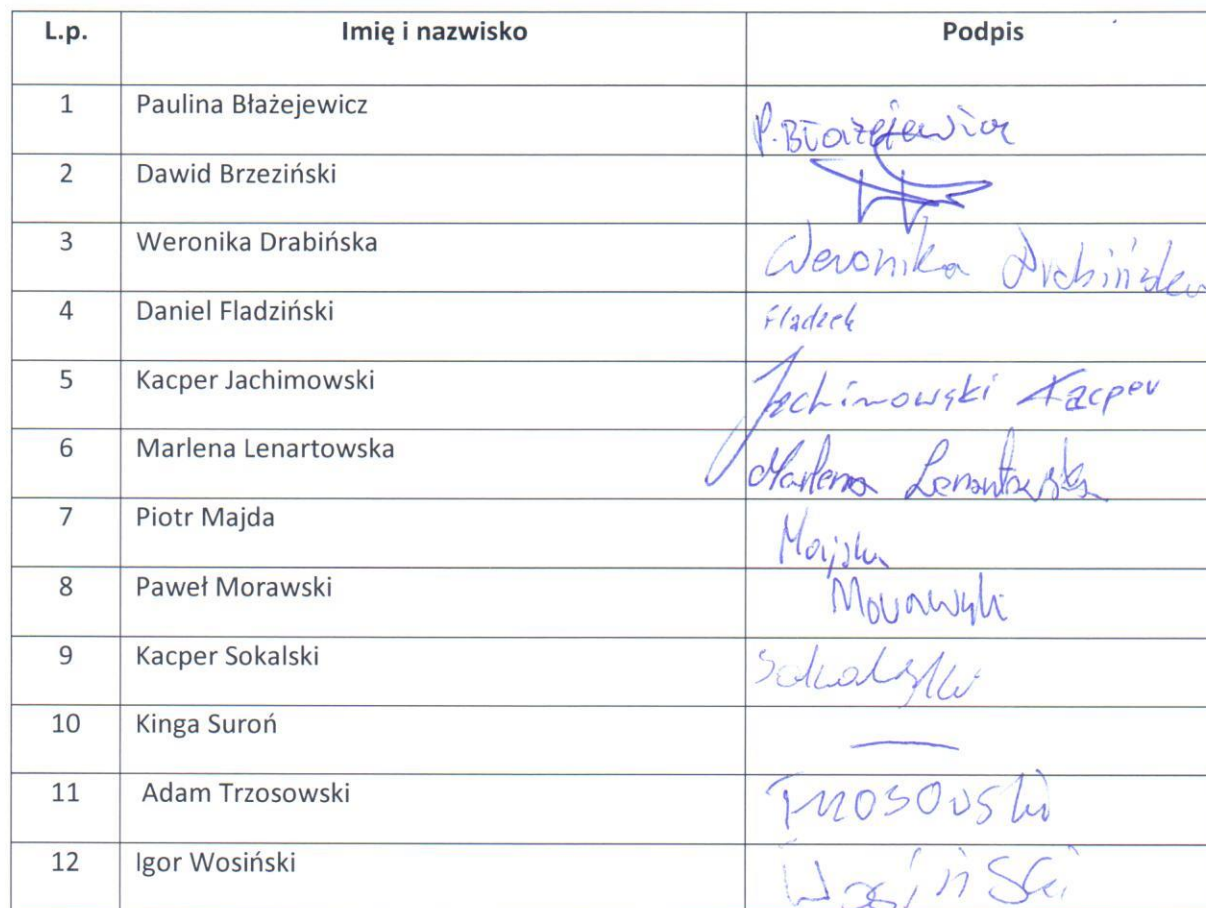 L.p. Imię i nazwisko Podpis
1 Paulina Błażejewicz P. Błażejewicz
2 Dawid Brzeziński
3 Weronika Drabińska Weronika Drabińska
4 Daniel Fladziński Fladzek
5 Kacper Jachimowski Jachimowski Kacper
6 Marlena Lenartowska Marlena Lenartowska
7 Piotr Majda
8 Paweł Morawski Morawski
9 Kacper Sokalski Sokalski
10 Kinga Suroń —
11 Adam Trzosowski Trzosowski
12 Igor Wosiński Wosiński